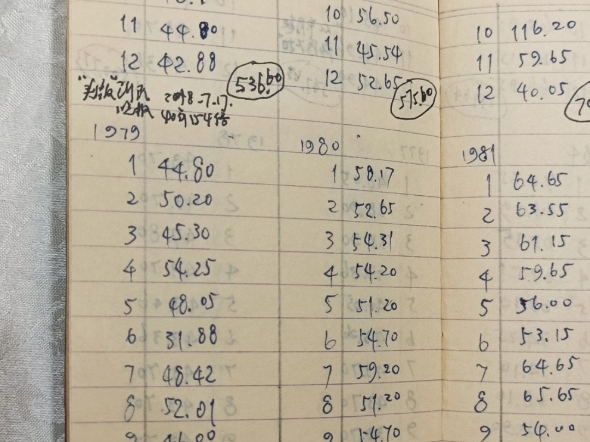 11 44.80
12 42.88
536.60
2018.7.17.
1979
1 44.80
2 50.20
3 45.30
4 54.25
5 48.05
6 31.88
7 48.42
8 52.01
10 56.50
11 45.54
12 52.65
575.60
1980
1 58.17
2 52.65
3 54.31
4 54.20
5 51.20
6 54.70
7 59.20
8 51.20
9 54.70
10 116.20
11 59.65
12 40.05
1981
1 64.65
2 63.55
3 61.15
4 59.65
5 56.00
6 53.15
7 64.65
8 65.65
9 54.00